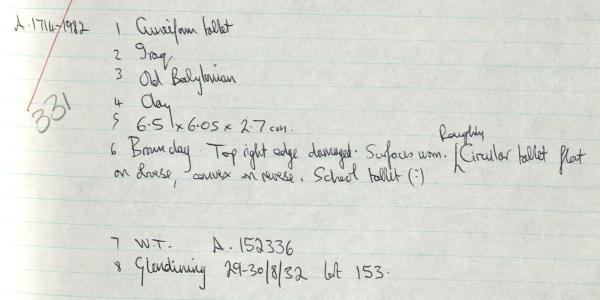 A.1714-1982 1 Cuneiform tablet
2 Iraq
3 Old Babylonian
331
4 Clay
5 6.5 x 6.05 x 2.7 cm.
Roughly
6 Brown clay. Top right edge damaged. Surfaces worn. [Circular tablet flat
on obverse, convex on reverse. School tablet (?)
7 W.T. A.152336
8 Glendining 29-30/8/32 lot 153.